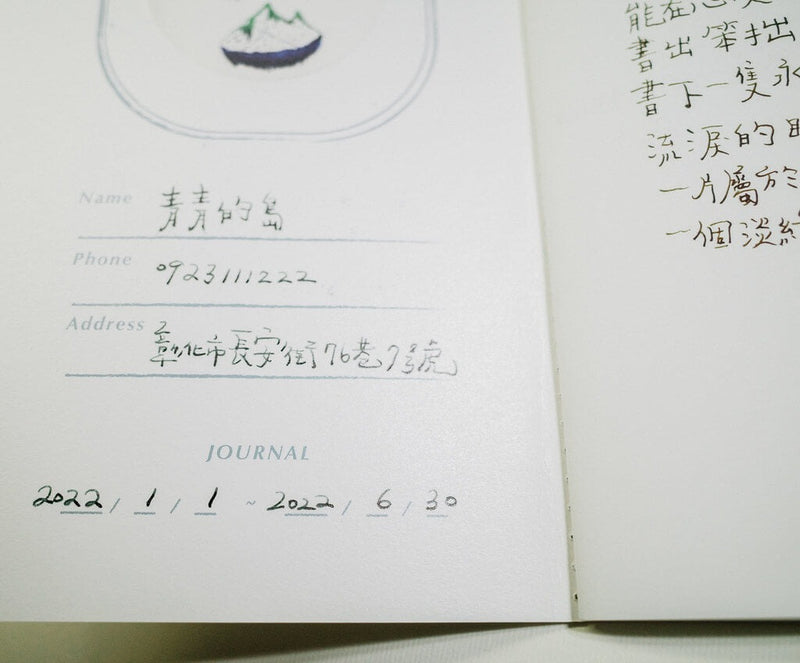 Name 青青的島
Phone 0923111222
Address 彰化市長安街76巷7號
JOURNAL
2022 / 1 / 1 ~ 2022 / 6 / 30
書出笨拙
書下一隻永
流淚的
一片屬於
一個淡